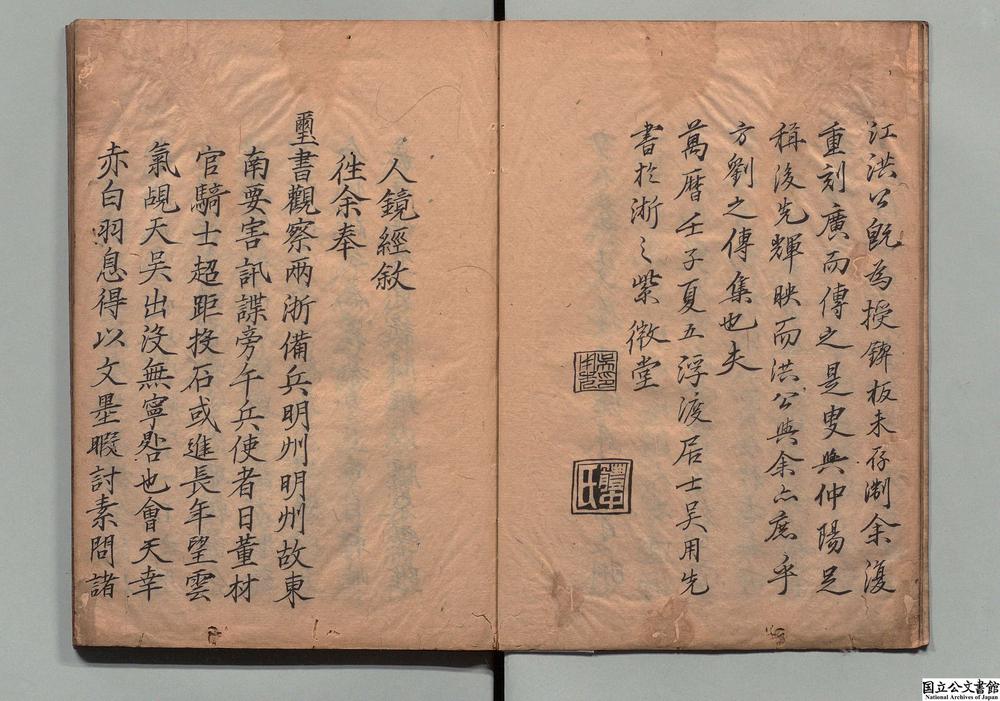 江洪公既為授鋟板未存淛余復
重刻廣而傳之是叟與仲陽足
稱後先輝映而洪公與余亦庶乎
方劉之傳集也夫
萬曆壬子夏五浮渡居士吳用先
書於浙之紫微堂
人鏡經敘
徃余奉
璽書觀察兩浙備兵明州明州故東
南要害訊諜旁午兵使者日董材
官騎士超距投石或進長年望雲
氣覘天吳出没無寧晷也會天幸
赤白羽息得以文墨暇討素問諸
国立公文書館
National Archives of Japan